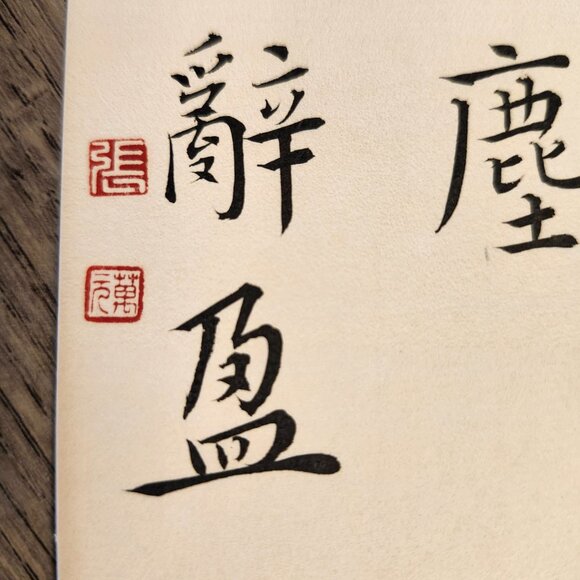 塵
辭盈
張
萬元